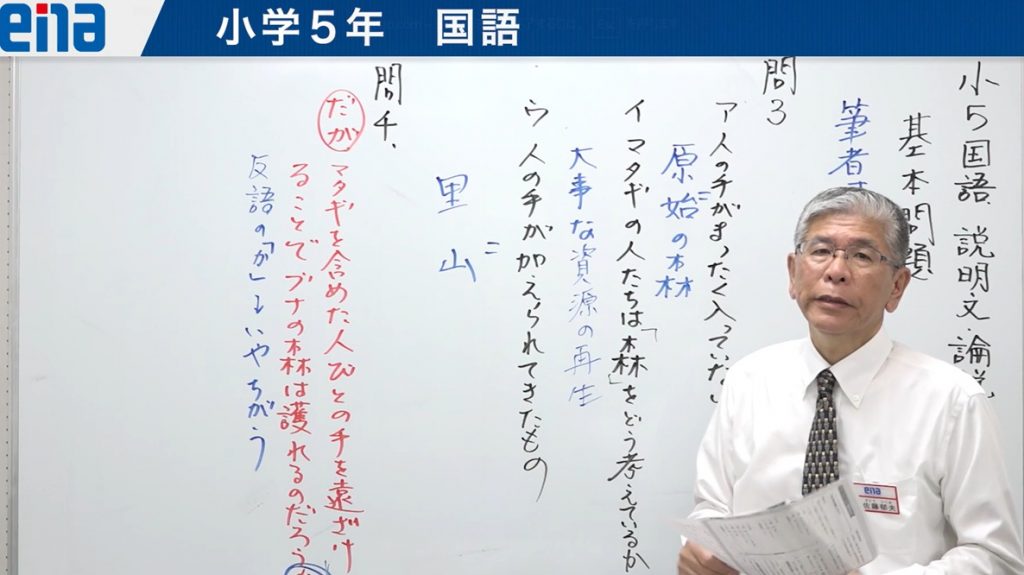 ena
小学5年 国語
小5国語 説明文・論説
基本問題
筆者
問3
ア 人の手がまったく入っていない
原始の森
イ マタギの人たちは「森」をどう考えているか
大事な資源の再生
ウ 人の手が加えられてきたもの
=
里山
問4、
だが マタギを含めた人びとの手を遠ざけ
ることでブナの森は護れるのだろうか
反語の「か」→いやちがう
ena
佐藤郁夫